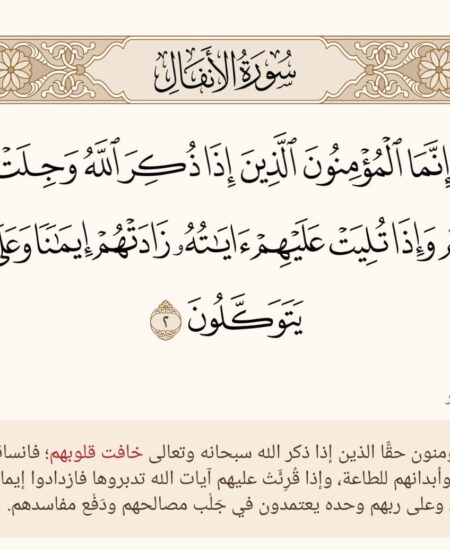 سُورَةُ الأَنفَالِ
إِنَّمَا ٱلْمُؤْمِنُونَ ٱلَّذِينَ إِذَا ذُكِرَ ٱللَّهُ وَجِلَتْ
وَإِذَا تُلِيَتْ عَلَيْهِمْ ءَايَـٰتُهُۥ زَادَتْهُمْ إِيمَـٰنًا وَعَلَىٰ
يَتَوَكَّلُونَ ٢
حقًّا الذين إذا ذكر الله سبحانه وتعالى خافت قلوبهم؛
وأبدانهم للطاعة، وإذا قُرِئَتْ عليهم آيات الله تدبروها فازدادوا
وعلى ربهم وحده يعتمدون في جَلْب مصالحهم ودَفْع مفاسدهم.